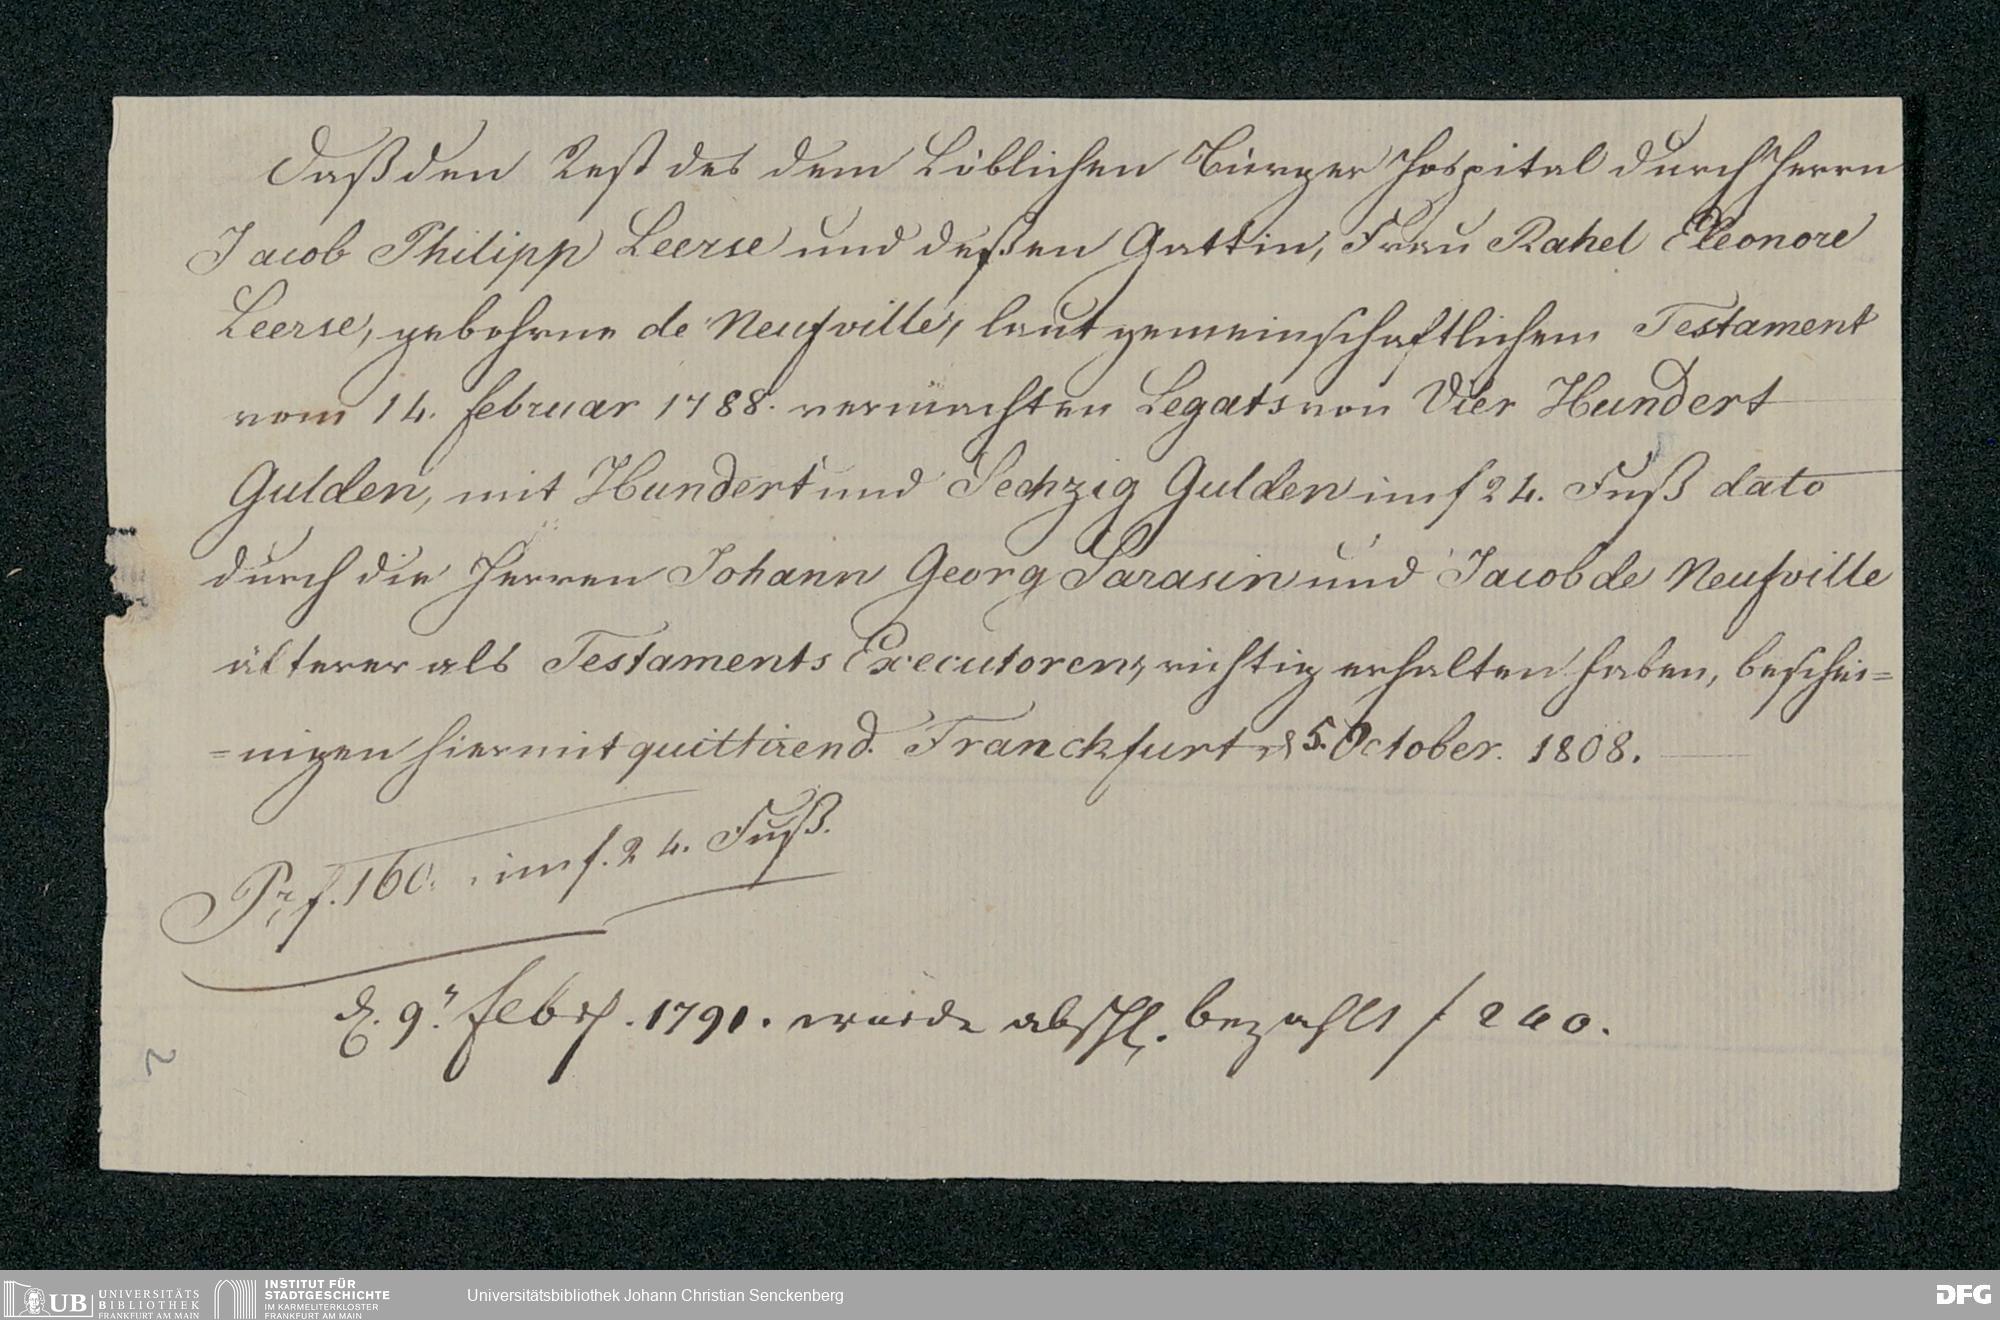 Daß den Rest des dem Löblichen Bürger Hospital durch Herrn
Jacob Philipp Leerse und deßen Gattin, Frau Rahel Eleonore
Leerse, gebohrne de Neufville, laut gemeinschaftlichem Testament
vom 14. Februar 1788. vermachten Legats von Vier Hundert
Gulden, mit Hundert und Sechzig Gulden im f 24. Fuß dato
durch die Herren Johann Georg Sarasin und Jacob de Neufville
älterer als Testaments Executoren, richtig erhalten haben, beschei=
=nigen hiermit quittirend. Franckfurt d 5. October. 1808.
Pr f. 160. im f. 24. Fuß.
d. 9n. Febr. 1791. wurde abschl. bezahlt f 240.
2
UB UNIVERSITÄTS
BIBLIOTHEK
FRANKFURT AM MAIN
INSTITUT FÜR
STADTGESCHICHTE
IM KARMELITERKLOSTER
FRANKFURT AM MAIN
Universitätsbibliothek Johann Christian Senckenberg
DFG